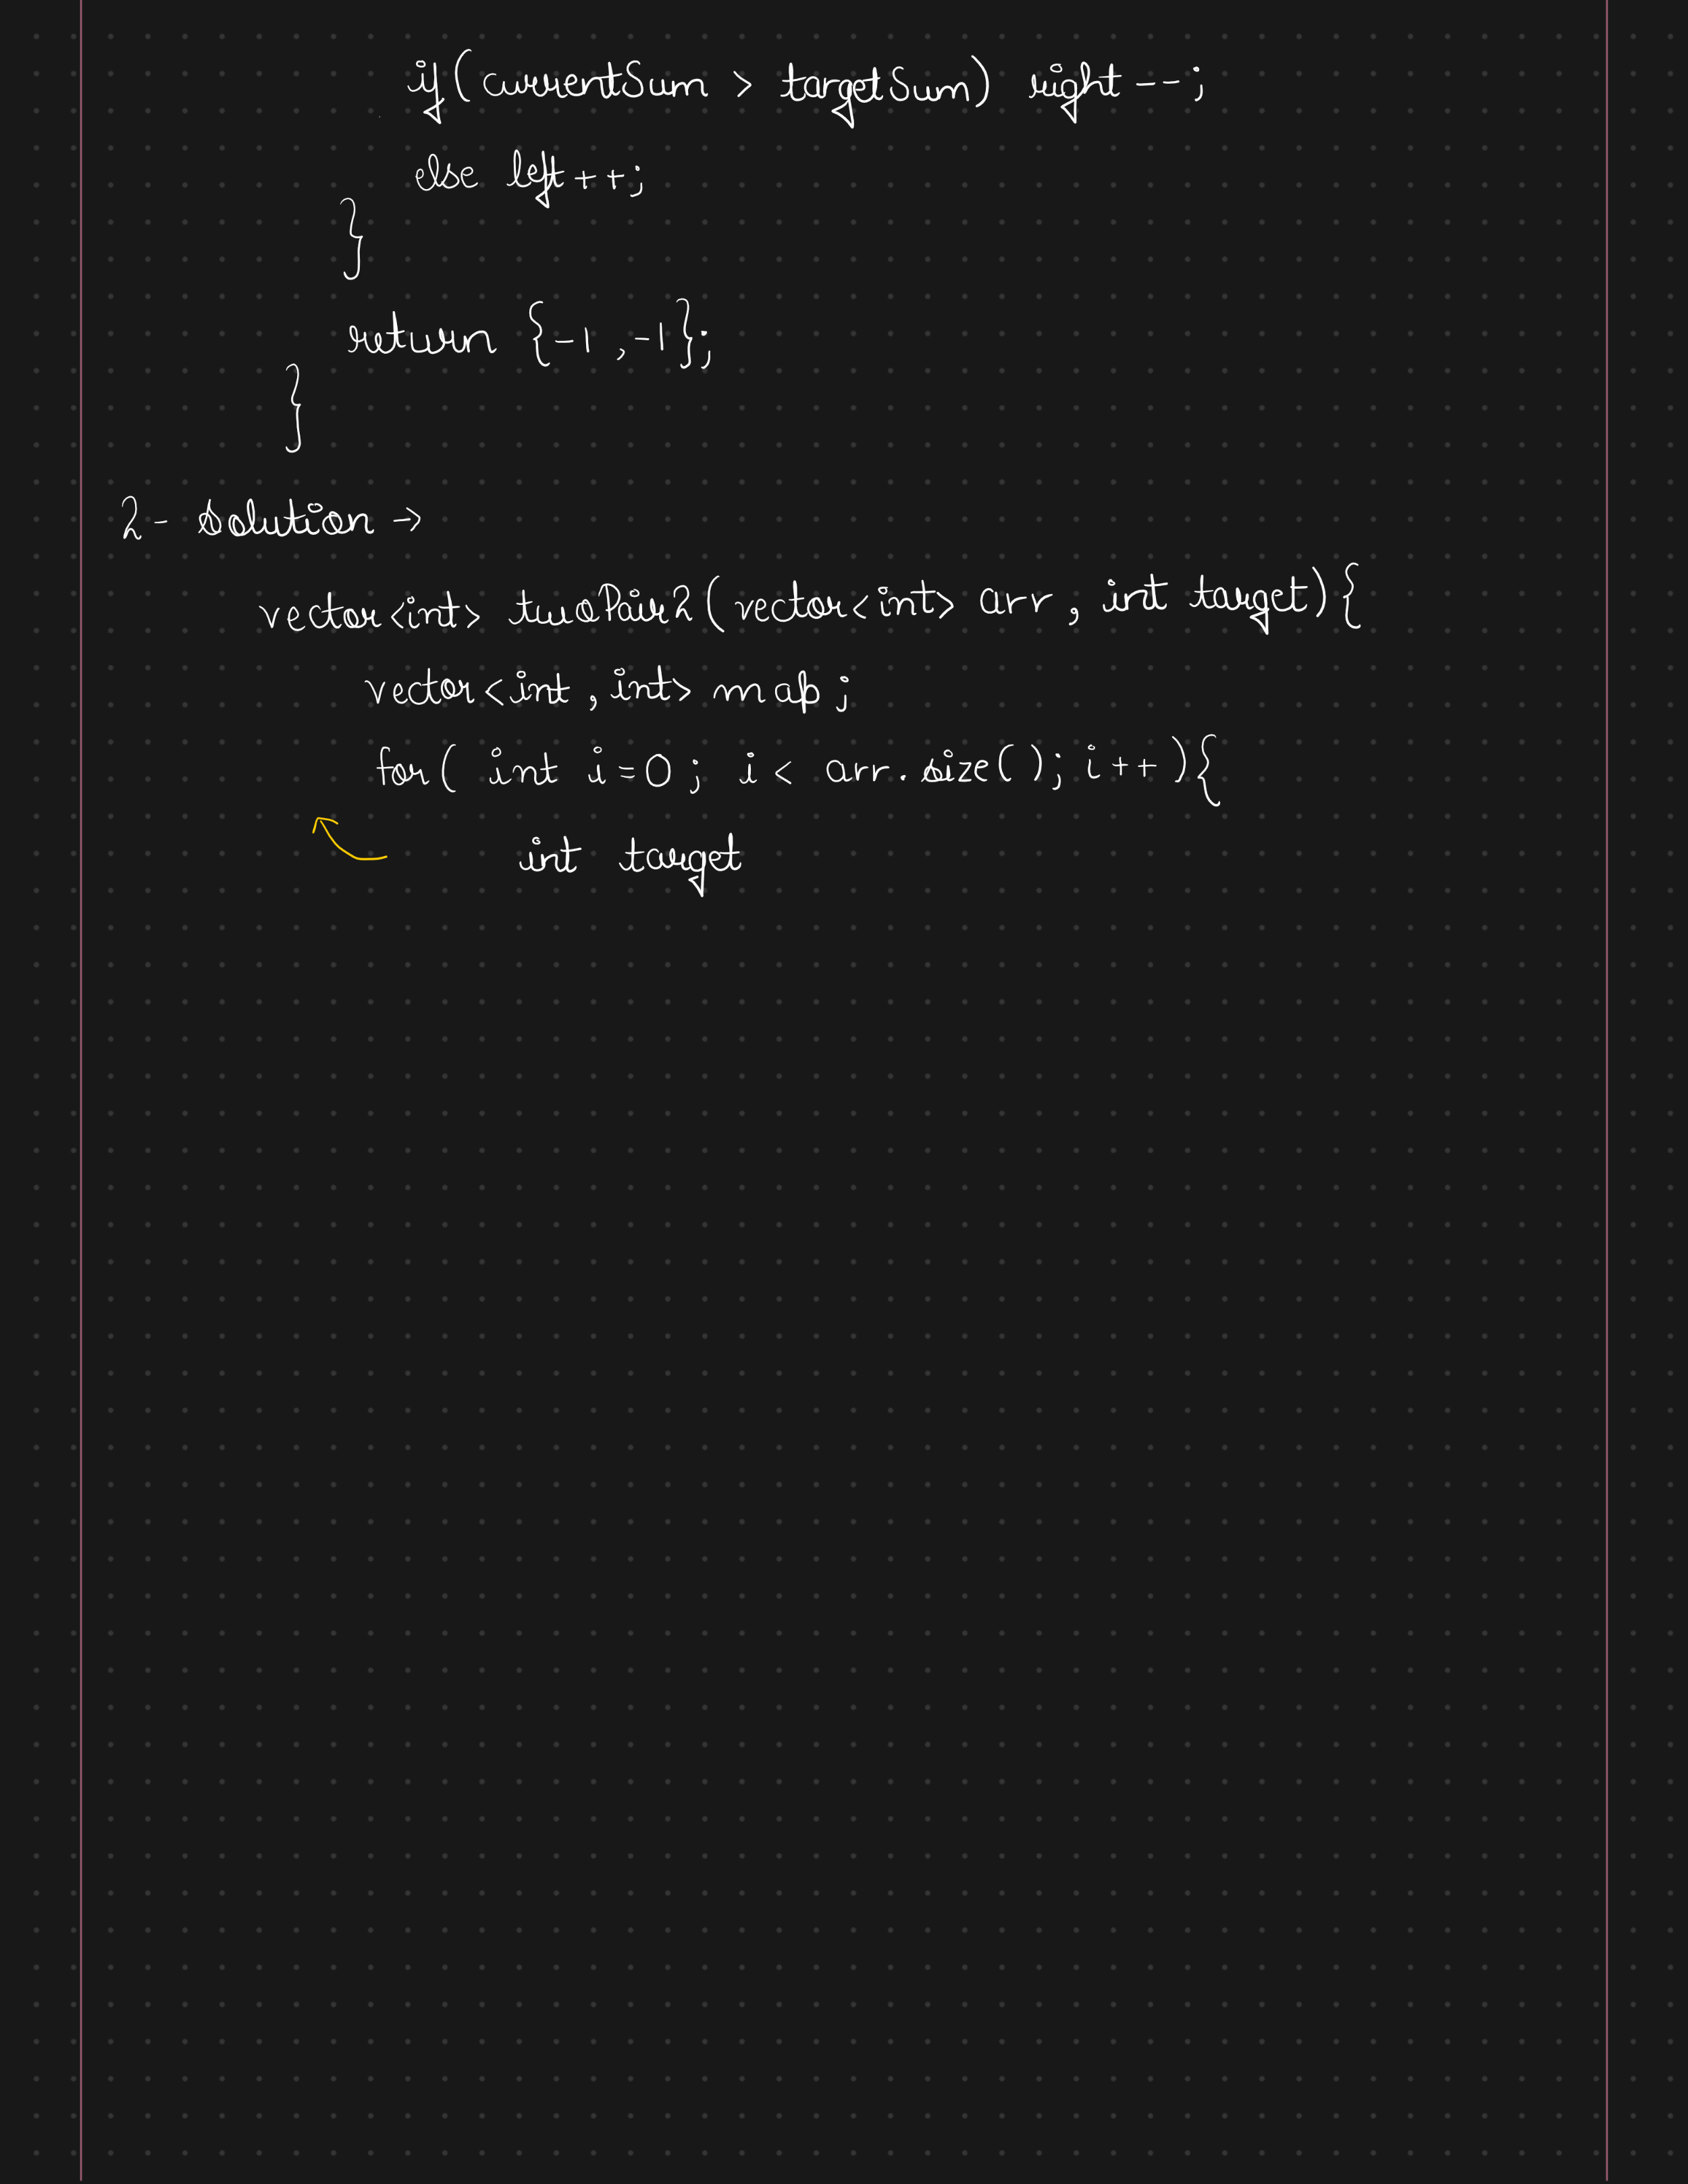 if(currentSum > targetSum) right--;
else left++;
}
return {-1,-1};
}
2- Solution →
vector<int> twoPair2(vector<int> arr, int target){
vector<int,int> map;
for( int i=0; i< arr.size(); i++){
int target